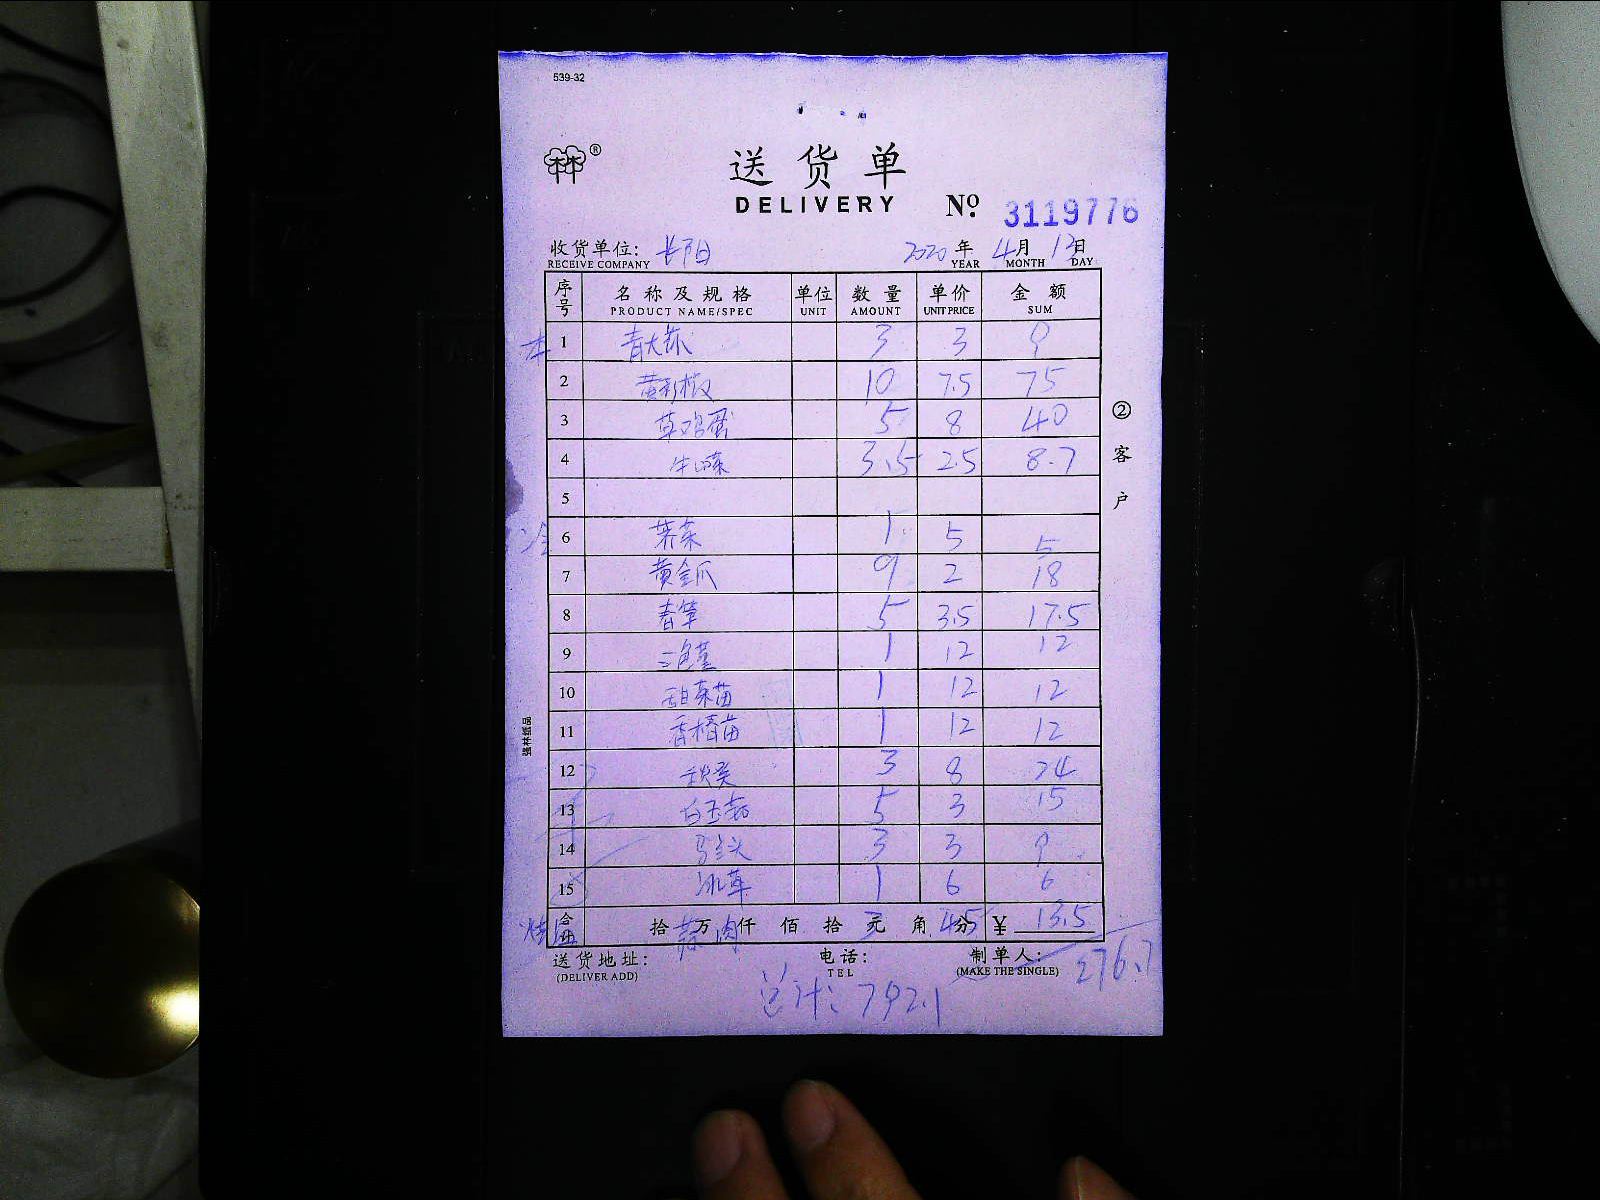 539-32
送货单
DELIVERY № 3119776
收货单位: 长阳 2020年 4月 13日
RECEIVE COMPANY YEAR MONTH DAY
序号 名称及规格 单位 数量 单价 金额
PRODUCT NAME/SPEC UNIT AMOUNT UNIT PRICE SUM
本 1 青大蒜 3 3 9
2 黄彩椒 10 7.5 75
3 草鸡蛋 5 8 40
4 3.5 2.5 8.7
5
冷 6 荠菜 1 5 5
7 黄金瓜 9 2 18
8 春笋 5 3.5 17.5
9 三色堇 1 12 12
10 甜菜苗 1 12 12
11 香椿苗 1 12 12
12 秋葵 3 8 24
13 白玉菇 5 3 15
14 马兰头 3 3 9
15 冰草 1 6 6
拾万仟佰拾元角分 蒜肉 3 4.5 ¥ 13.5
送货地址: 电话: 制单人: 276.7
(DELIVER ADD) TEL (MAKE THE SINGLE)
总计: 792.1
②客户
强林纸品